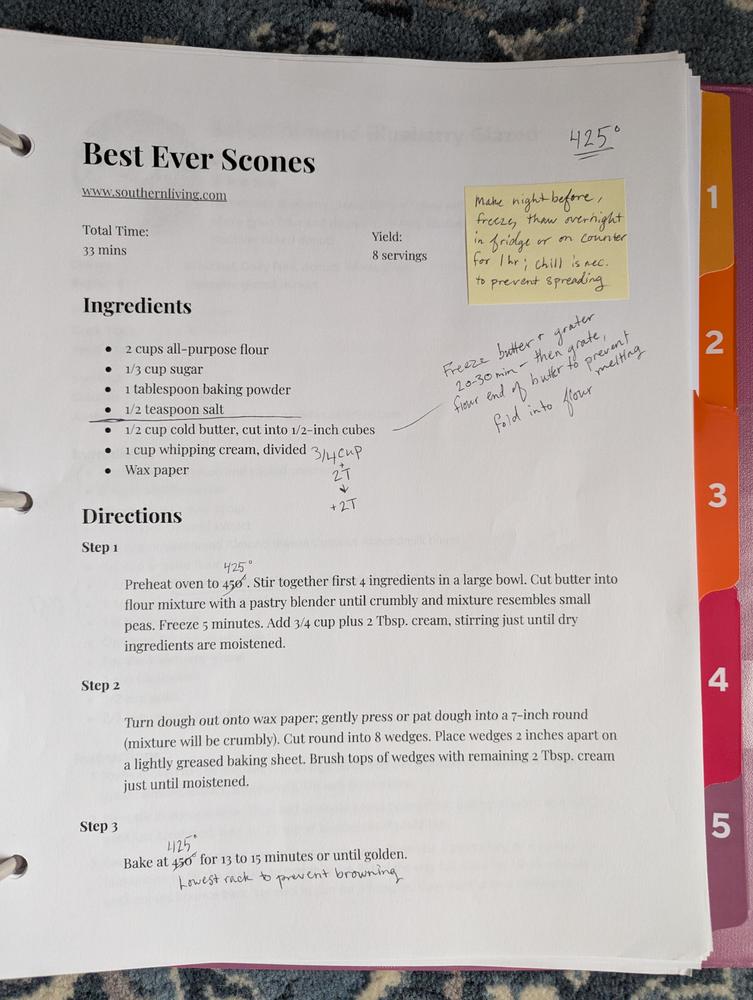 425°
Best Ever Scones
www.southernliving.com
Make night before,
freeze, thaw overnight
in fridge or on counter
for 1 hr; chill is nec.
to prevent spreading
Total Time:
33 mins
Yield:
8 servings
Ingredients
Freeze butter + grater
20-30 min - then grate,
flour end of butter to prevent
melting
fold into flour
• 2 cups all-purpose flour
• 1/3 cup sugar
• 1 tablespoon baking powder
• 1/2 teaspoon salt
• 1/2 cup cold butter, cut into 1/2-inch cubes
• 1 cup whipping cream, divided 3/4 cup
+
2T
↓
+2T
• Wax paper
Directions
Step 1
425°
Preheat oven to 450°. Stir together first 4 ingredients in a large bowl. Cut butter into
flour mixture with a pastry blender until crumbly and mixture resembles small
peas. Freeze 5 minutes. Add 3/4 cup plus 2 Tbsp. cream, stirring just until dry
ingredients are moistened.
Step 2
Turn dough out onto wax paper; gently press or pat dough into a 7-inch round
(mixture will be crumbly). Cut round into 8 wedges. Place wedges 2 inches apart on
a lightly greased baking sheet. Brush tops of wedges with remaining 2 Tbsp. cream
just until moistened.
Step 3
425°
Bake at 450° for 13 to 15 minutes or until golden.
Lowest rack to prevent browning
1
2
3
4
5